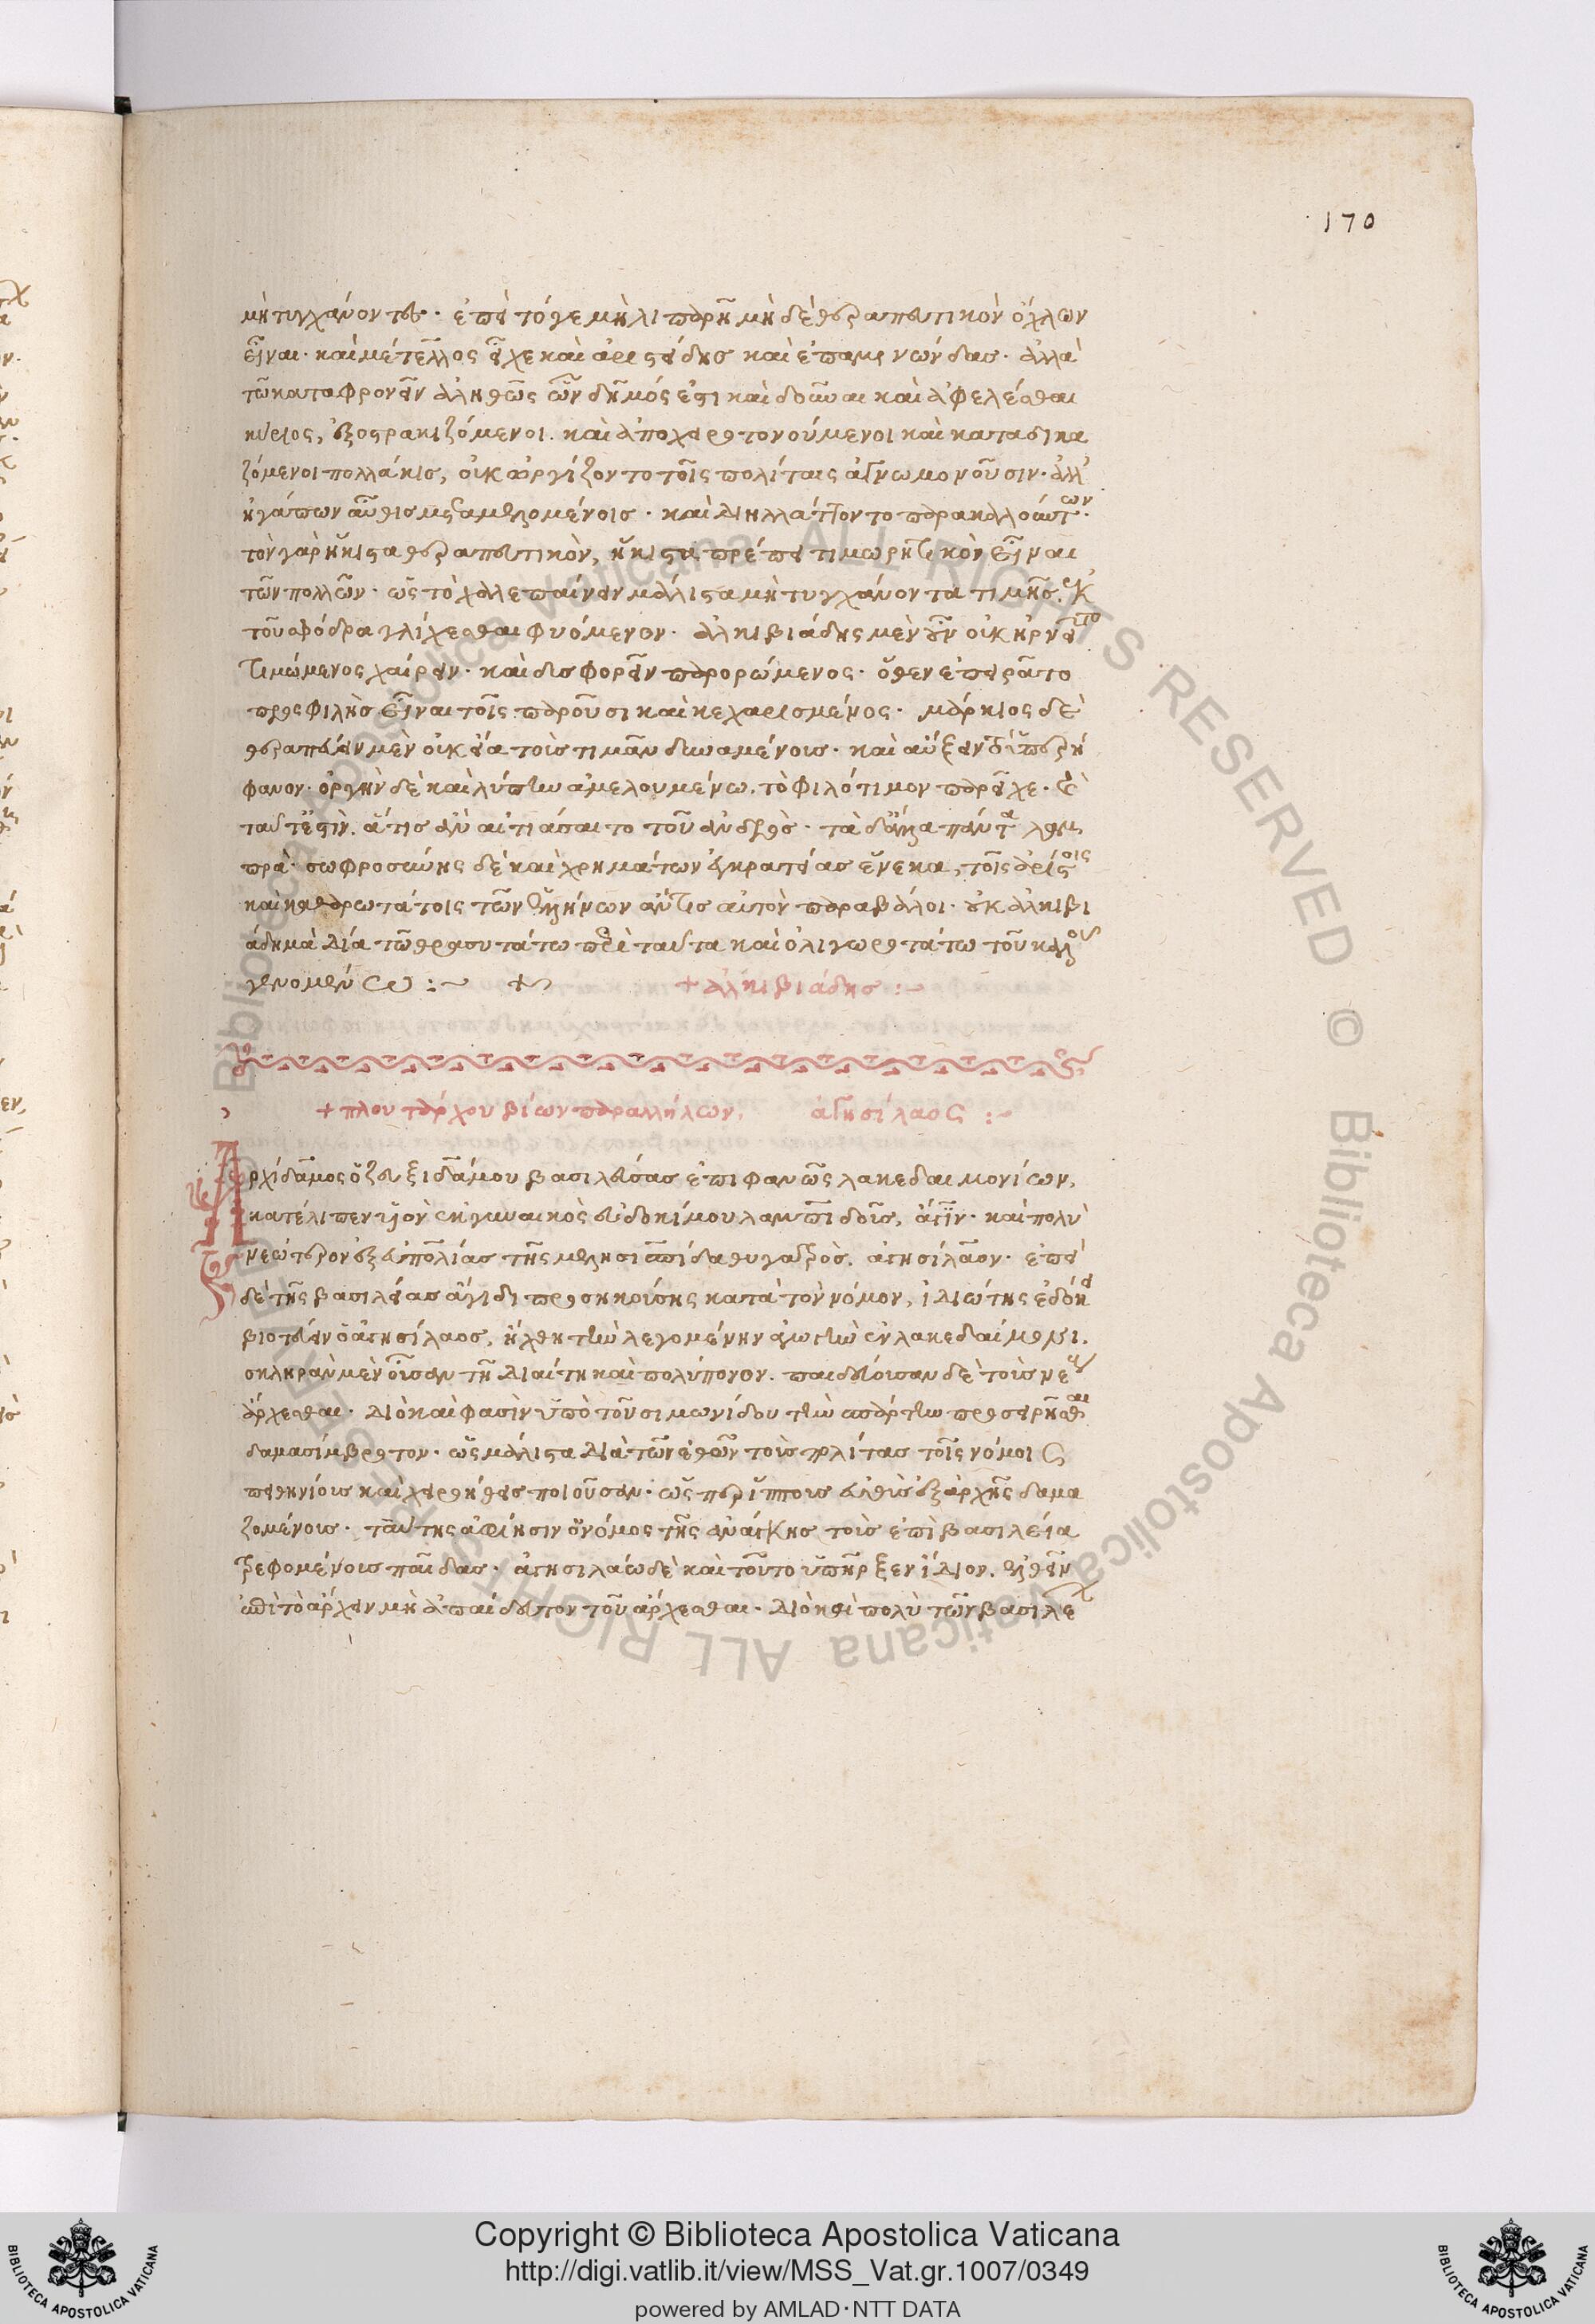 170
μὴ τυγχάνοντες. ἐπεὶ τόγε μὴ λιπαρῆ μὴ δὲ θεραπευτικὸν ὄχλων
εἶναι. καὶ μέτελλος εἶχε καὶ ἀριστείδης καὶ ἐπαμινώνδας. ἀλλὰ
τῶ καταφρονεῖν ἀληθῶς ὧν δῆμός ἐστι καὶ δοῦναι καὶ ἀφελέσθαι
κύριος, ἐξοστρακιζόμενοι. καὶ ἀποχειροτονούμενοι καὶ καταδικα
ζόμενοι πολλάκις, οὐκ ὠργίζοντο τοῖς πολίταις ἀγνωμονοῦσιν. ἀλλ'
ἠγάπων αὖθις μεταμελομένοις. καὶ διηλλάττοντο παρακαλούντων.
τὸν γὰρ ἥκιστα θεραπευτικὸν, ἥκιστα πρέπει τιμωρητικὸν εἶναι
τῶν πολλῶν. ὡς τὸ χαλεπαίνειν μάλιστα μὴ τυγχάνοντα τιμῆς. ἐκ
τοῦ σφόδρα γλίχεσθαι φυόμενον. ἀλκιβιάδης μὲν οὖν οὐκ ἠρνεῖτο
τιμώμενος χαίρειν. καὶ δυσφορεῖν παρορώμενος. ὅθεν ἐπειρᾶτο
προσφιλὴς εἶναι τοῖς παροῦσι καὶ κεχαρισμένος. μάρκιος δὲ
θεραπεύειν μὲν οὐκ εἴα τοὺς τιμᾶν δυναμένους. καὶ αὔξειν τὸ ὑπερή
φανον. ὀργὴν δὲ καὶ λύπην ἀμελουμένω. τὸ φιλότιμον παρεῖχε. καὶ
ταῦτ' ἔστιν. ἅ τις ἂν αἰτιάσαιτο τοῦ ἀνδρός. τὰ δ' ἄλλα πάντα λαμ
πρά. σωφροσύνης δὲ καὶ χρημάτων ἐγκρατείας ἕνεκα, τοῖς ἀρίστοις
καὶ καθαρωτάτοις τῶν ἑλλήνων ἄν τις αὐτὸν παραβάλοι. οὐκ ἀλκιβι
άδη μὰ δία τῶ θρασυτάτω περὶ ταῦτα καὶ ὀλιγωροτάτω τοῦ καλοῦ
γενομένω :~
+ ἀλκιβιάδης :~
+ πλουτάρχου βίων παραλλήλων. ἀγησίλαος :~
Ἀρχίδαμος ὁ ζευξιδάμου βασιλεύσας ἐπιφανῶς λακεδαιμονίων,
κατέλιπεν υἱὸν ἐκ γυναικὸς εὐδοκίμου λαμπιδοῦς, ἄγιν. καὶ πολὺ
νεώτερον ἐξ εὐπολίας τῆς μελησιππίδα θυγατρὸς. ἀγησίλαον. ἐπεὶ
δὲ τῆς βασιλείας ἄγιδι προσηκούσης κατὰ τὸν νόμον, ἰδιώτης ἐδόκει
βιοτεύειν ὁ ἀγησίλαος, ἤχθη τὴν λεγομένην ἀγωγὴν ἐν λακεδαίμονι.
σκληρὰν μὲν οὖσαν τῆ διαίτη καὶ πολύπονον. παιδεύουσαν δὲ τοὺς νέους
ἄρχεσθαι. διὸ καὶ φασὶν ὑπὸ τοῦ σιμωνίδου τὴν σπάρτην προσειρῆσθαι
δαμασίμβροτον. ὡς μάλιστα διὰ τῶν ἐθῶν τοὺς πολίτας τοῖς νόμοις
πειθηνίους καὶ χειροήθεις ποιοῦσαν. ὡς περ ἵππους εὐθὺς ἐξ ἀρχῆς δαμα
ζομένους. ταύτης ἀφίησιν ὁ νόμος τῆς ἀνάγκης τοὺς ἐπὶ βασιλεία
τρεφομένους παῖδας. ἀγησιλάω δὲ καὶ τοῦτο ὑπῆρξεν ἴδιον. ἐλθεῖν
ἐπὶ τὸ ἄρχειν μὴ ἀπαίδευτον τοῦ ἄρχεσθαι. διὸ καὶ πολὺ τῶν βασιλέων
Copyright © Biblioteca Apostolica Vaticana
http://digi.vatlib.it/view/MSS_Vat.gr.1007/0349
powered by AMLAD·NTT DATA